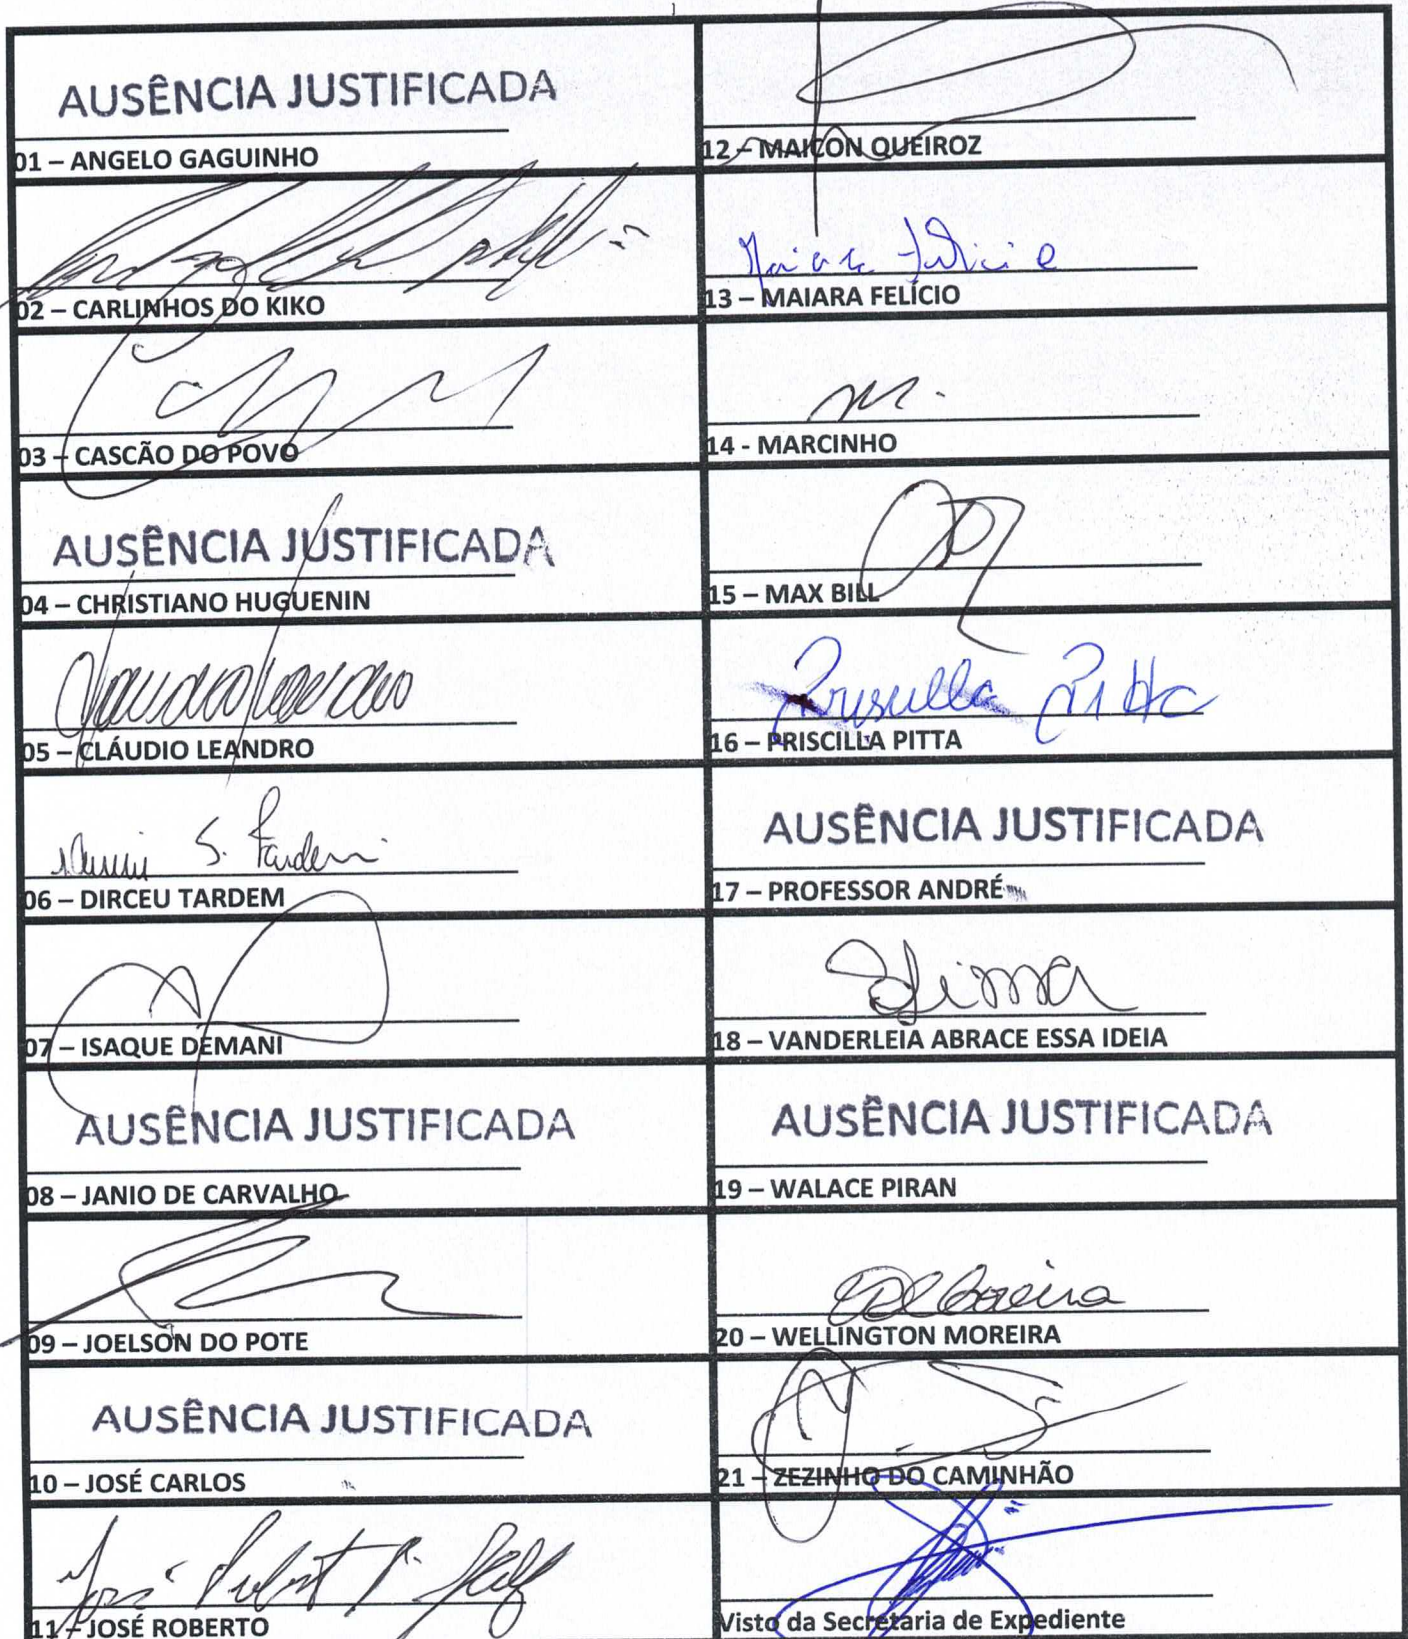 AUSÊNCIA JUSTIFICADA
01 – ANGELO GAGUINHO
02 – CARLINHOS DO KIKO
03 – CASCÃO DO POVO
AUSÊNCIA JUSTIFICADA
04 – CHRISTIANO HUGUENIN
05 – CLÁUDIO LEANDRO
S. Tardem
06 – DIRCEU TARDEM
07 – ISAQUE DEMANI
AUSÊNCIA JUSTIFICADA
08 – JANIO DE CARVALHO
09 – JOELSON DO POTE
AUSÊNCIA JUSTIFICADA
10 – JOSÉ CARLOS
José
11 – JOSÉ ROBERTO
12 – MAICON QUEIROZ
Maiara Felicio
13 – MAIARA FELÍCIO
14 - MARCINHO
15 – MAX BILL
Priscilla Pitta
16 – PRISCILLA PITTA
AUSÊNCIA JUSTIFICADA
17 – PROFESSOR ANDRÉ
18 – VANDERLEIA ABRACE ESSA IDEIA
AUSÊNCIA JUSTIFICADA
19 – WALACE PIRAN
20 – WELLINGTON MOREIRA
21 – ZEZINHO DO CAMINHÃO
Visto da Secretaria de Expediente